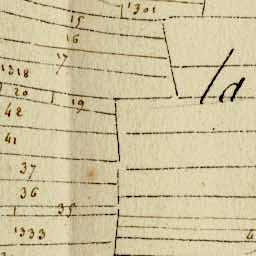 1301
15
16
17
1318
la
20
19
42
41
37
36
35
1333
4